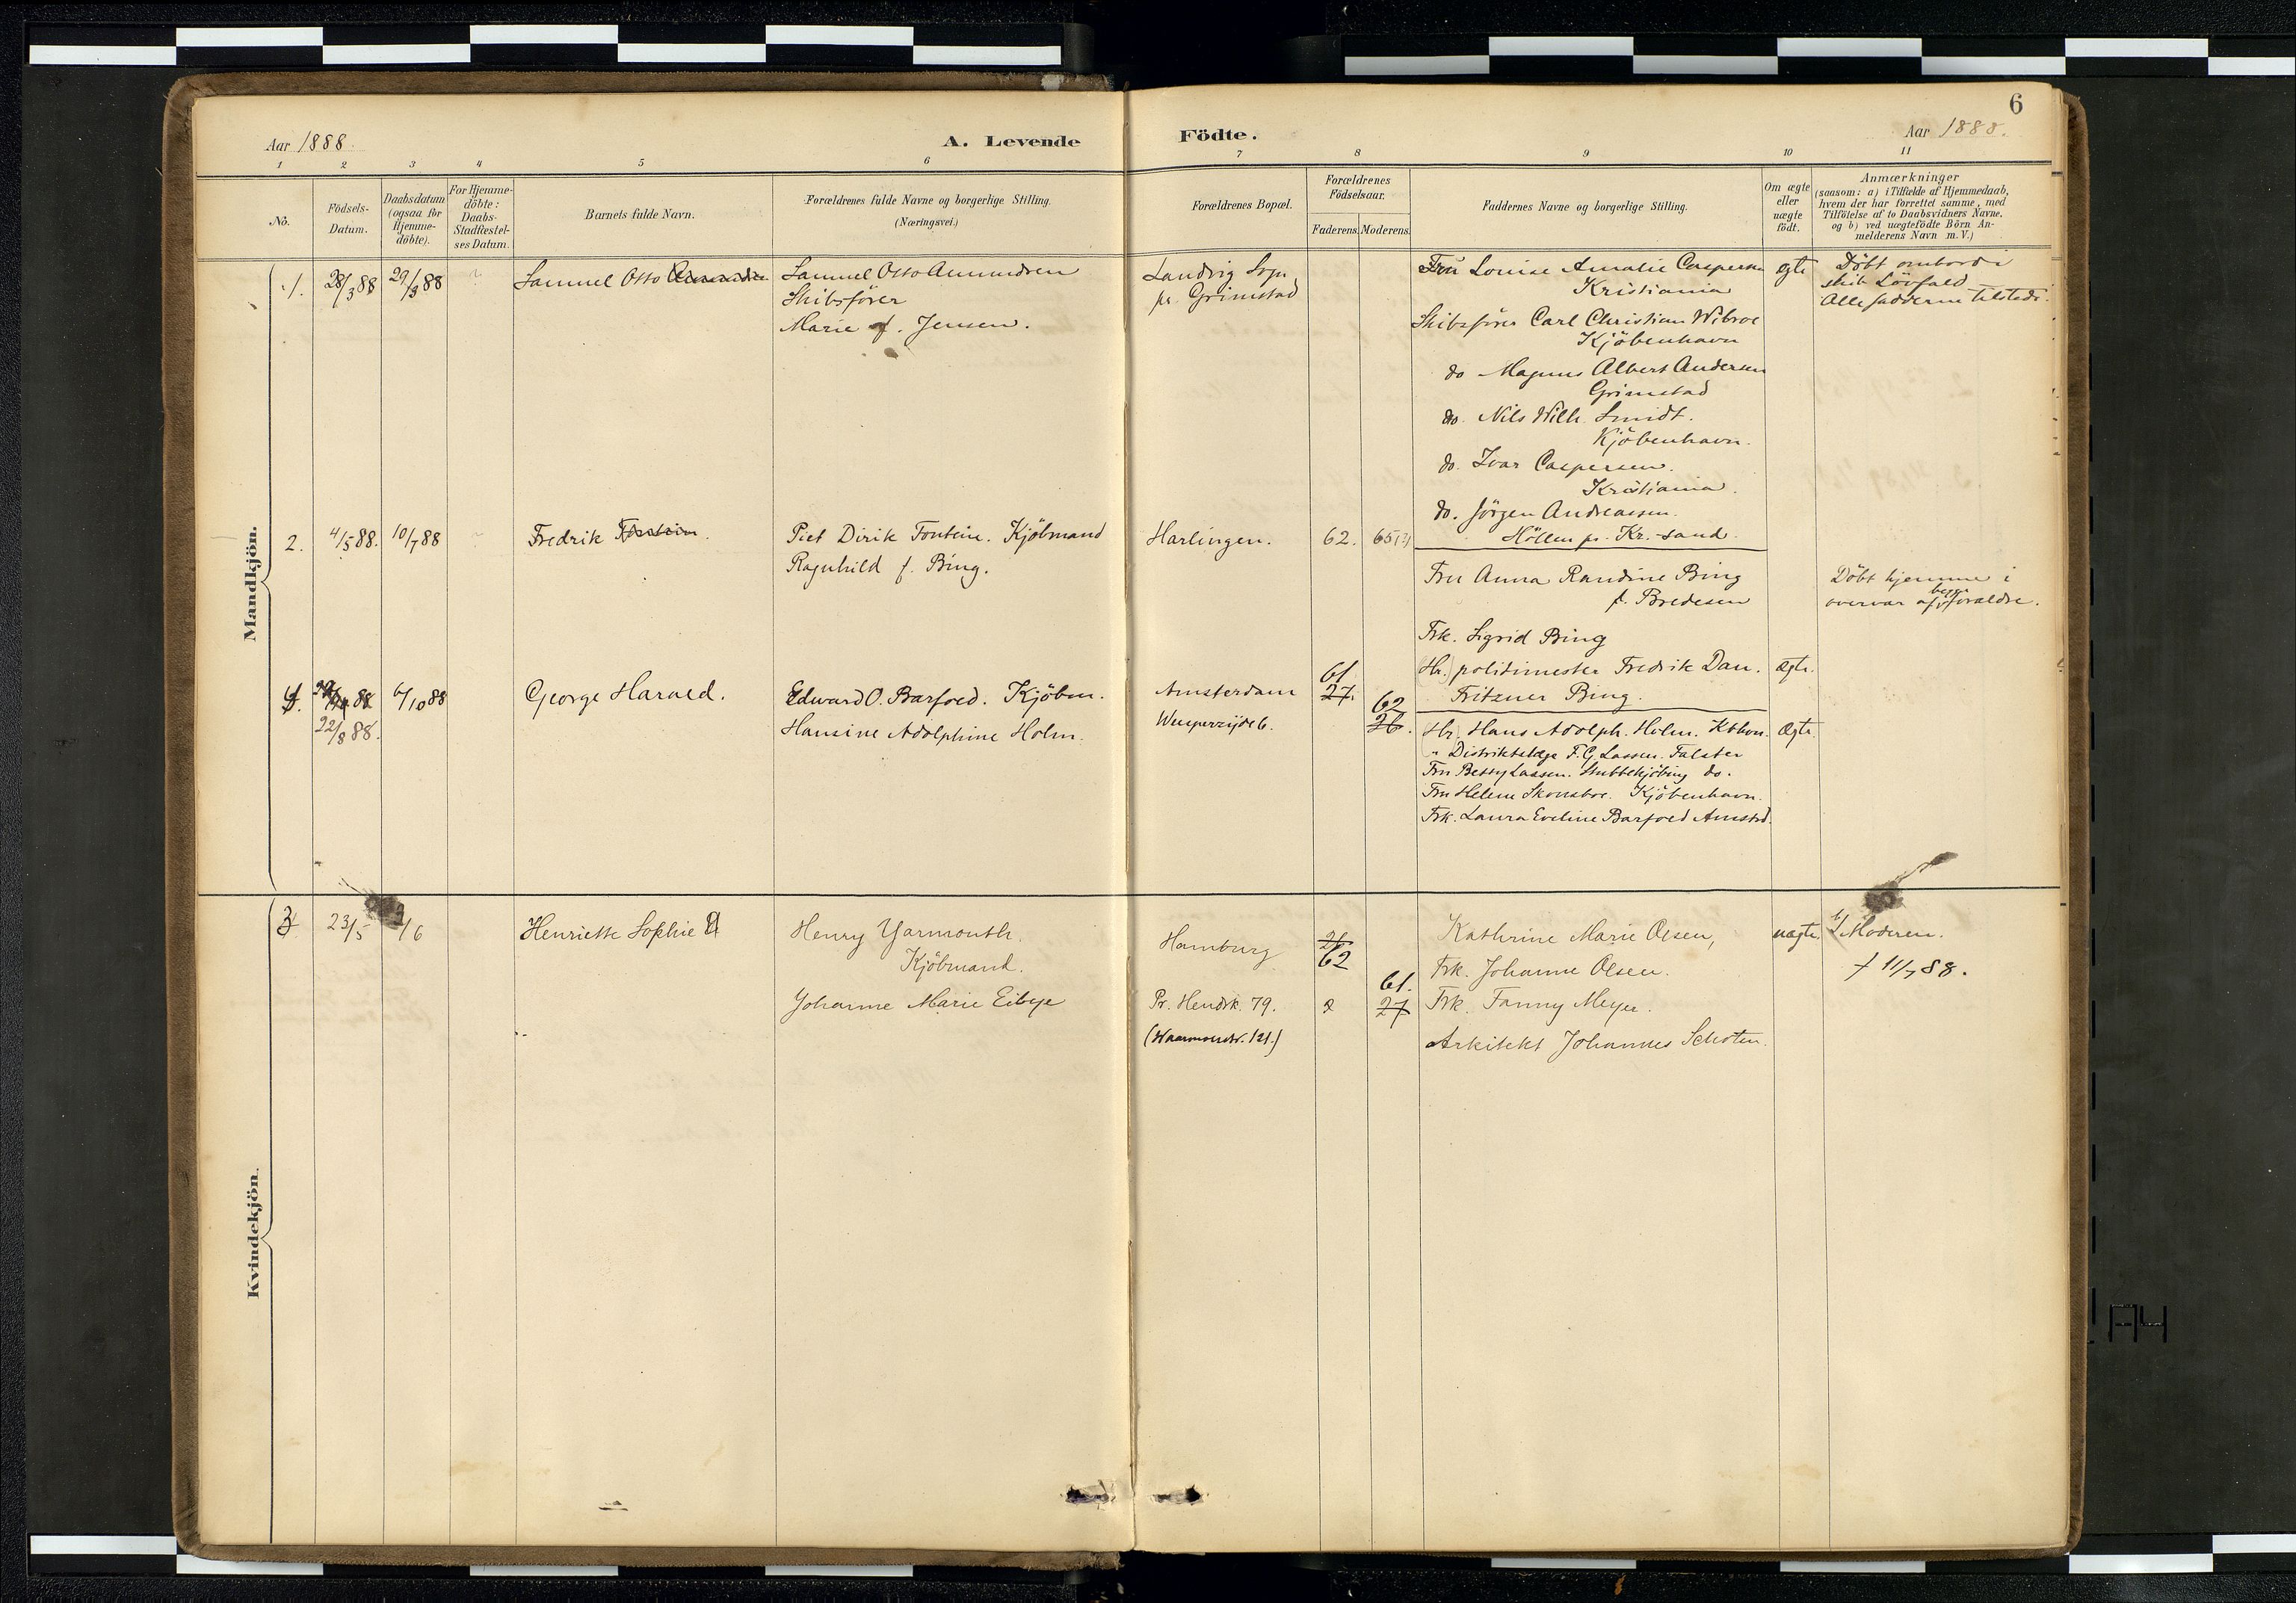 6
Aar 1888.
A. Levende
Födte.
Aar 1888.
1 2 3 4 5 6 7 8 9 10 11
No.
Födsels-
Datum.
Daabsdatum
(ogsaa for
Hjemme-
döbte).
For Hjemme-
döbte:
Daabs-
Stadfæstel-
ses Datum.
Barnets fulde Navn.
Forældrenes fulde Navne og borgerlige Stilling.
(Næringsvei.)
Forældrenes Bopæl.
Forældrenes
Födselsaar.
Faderens. Moderens.
Faddernes Navne og borgerlige Stilling.
Om ægte
eller
uægte
födt.
Anmærkninger
(saasom: a) i Tilfælde af Hjemmedaab,
hvem der har forrettet samme, med
Tilföielse af to Daabsvidners Navne,
og b) ved uægtefödte Börn An-
melderens Navn m. V.)
Mandkjön.
1. 28/3 88 29/3 88 Samuel Otto Amundsen
Samuel Otto Amundsen
Skibsförer
Marie f. Jensen.
Landvig Sogn
pr. Grimstad
Fru Louise Amalie Caspersen
Kristiania
Skibsförer Carl Christian Wibroe
Kjöbenhavn
do Magnus Albert Andersen
Grimstad
do. Nils Wilh. Smidt.
Kjöbenhavn.
do. Ivar Caspersen.
Kristiania.
do. Jörgen Andreassen.
Höllen pr. Kr.-sand.
ægte
Döbt ombord i
skib Lövfald
Alle fadderne tilstede.
2. 4/5 88. 10/7 88 Fredrik Fontein.
Piet Dirik Fontein. Kjöbmand
Ragnhild f. Bing.
Harlingen. 62. 65(?)
Fru Anna Randine Bing
f. Bredesen
Frk. Sigrid Bing
(Hr.) politimester Fredrik Dan.
Fritzner Bing.
ægte.
Döbt hjemme i
overvær af begge forældre.
4. 88 6/10 88 George Harald.
22/8 88.
Edward O. Barfoed. Kjöbm.
Hansine Adolphine Holm.
Amsterdam
Weesperzijde 6.
61
27.
62
26.
Hr. Hans Adolph. Holm. Kbhvn.
" Distriktslæge F. G. Lassen. Falster
Fru Betsy Lassen. Stubbekjöbing do.
Fru Helene Skousboe. Kjöbenhavn.
Frk. Laura Eveline Barfoed Amstrd.
Ægte.
Kvindekjön.
3 23/5 /6 Henriette Sophie
Henry Yarmouth.
Kjöbmand.
Johanne Marie Eibye
Hamburg
Pr. Hendk. 79.
26
62
61.
27
Kathrine Marie Olsen,
Frk. Johanne Olsen.
Frk. Fanny Meyer.
Arkitekt Johannes Schoten.
uægte.
b/ Moderen.
† 11/7 88.